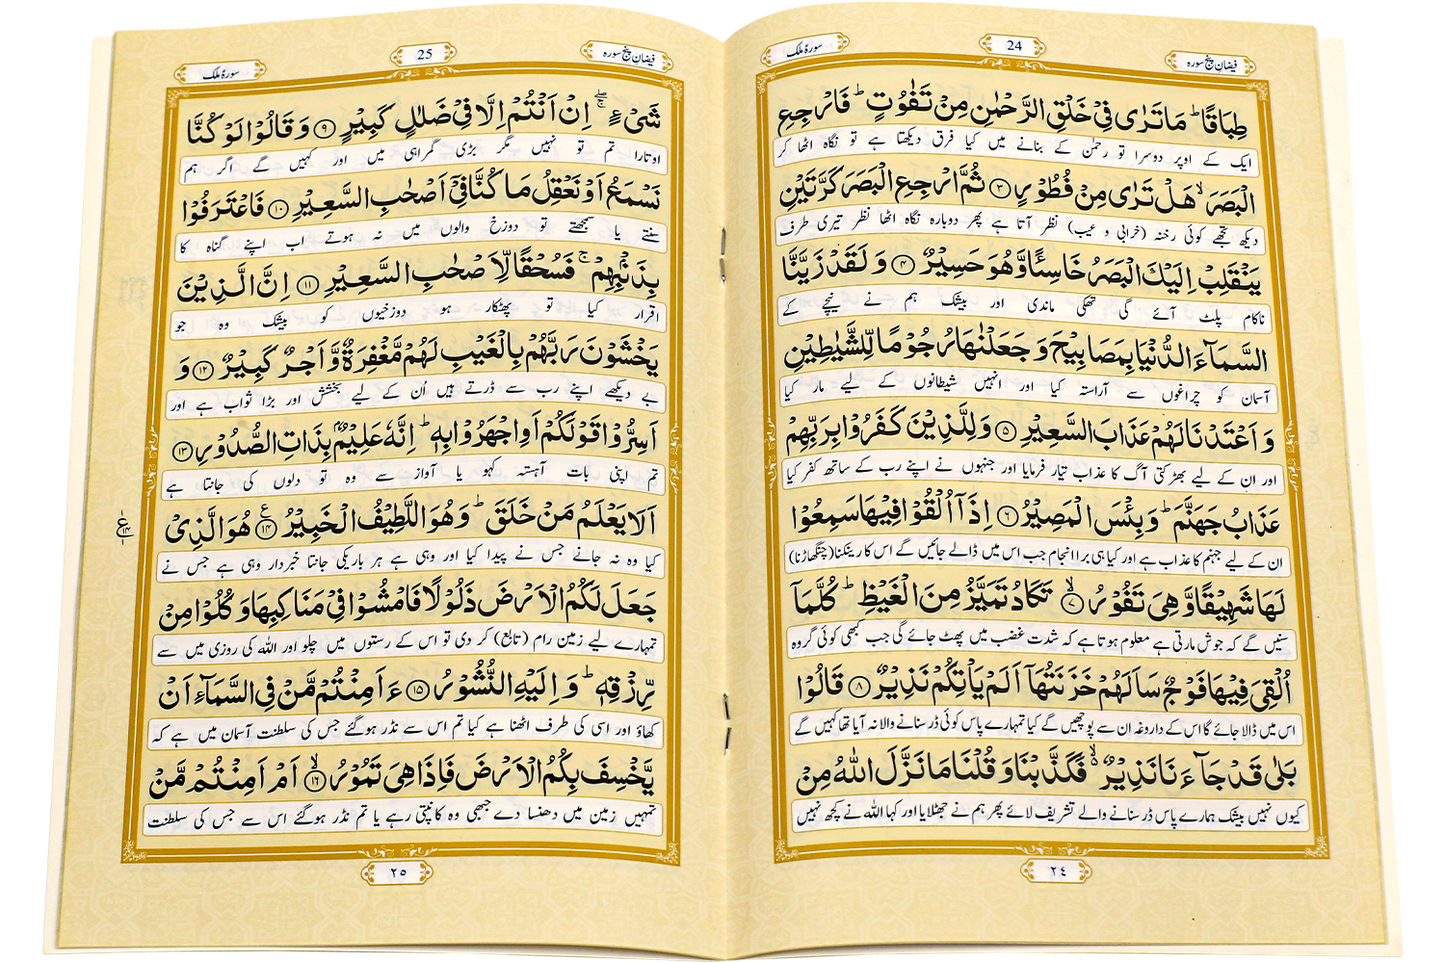 فیضان پنج سورہ
24
سورۂ ملک
طِبَاقًا ؕ مَا تَرٰى فِیْ خَلْقِ الرَّحْمٰنِ مِنْ تَفٰوُتٍ ؕ فَارْجِعِ
ایک کے اوپر دوسرا تو رحمٰن کے بنانے میں کیا فرق دیکھتا ہے تو نگاہ اٹھا کر
الْبَصَرَ ۙ هَلْ تَرٰى مِنْ فُطُوْرٍ ﴿۳﴾ ثُمَّ ارْجِعِ الْبَصَرَ كَرَّتَیْنِ
دیکھ تجھے کوئی رخنہ (خرابی و عیب) نظر آتا ہے پھر دوبارہ نگاہ اٹھا نظر تیری طرف
یَنْقَلِبْ اِلَیْكَ الْبَصَرُ خَاسِئًا وَّ هُوَ حَسِیْرٌ ﴿۴﴾ وَ لَقَدْ زَیَّنَّا
ناکام پلٹ آئے گی تھکی ماندی اور بیشک ہم نے نیچے کے
السَّمَآءَ الدُّنْیَا بِمَصَابِیْحَ وَ جَعَلْنٰهَا رُجُوْمًا لِّلشَّیٰطِیْنِ
آسمان کو چراغوں سے آراستہ کیا اور انہیں شیطانوں کے لیے مار کیا
وَ اَعْتَدْنَا لَهُمْ عَذَابَ السَّعِیْرِ ﴿۵﴾ وَ لِلَّذِیْنَ كَفَرُوْا بِرَبِّهِمْ
اور ان کے لیے بھڑکتی آگ کا عذاب تیار فرمایا اور جنہوں نے اپنے رب کے ساتھ کفر کیا
عَذَابُ جَهَنَّمَ ؕ وَ بِئْسَ الْمَصِیْرُ ﴿۶﴾ اِذَاۤ اُلْقُوْا فِیْهَا سَمِعُوْا
ان کے لیے جہنم کا عذاب ہے اور کیا ہی برا انجام جب اس میں ڈالے جائیں گے اس کا رینکنا (چنگھاڑنا)
لَهَا شَهِیْقًا وَّ هِیَ تَفُوْرُ ۙ﴿۷﴾ تَكَادُ تَمَیَّزُ مِنَ الْغَیْظِ ؕ كُلَّمَاۤ
سنیں گے کہ جوش مارتی ہے معلوم ہوتا ہے کہ شدت غضب میں پھٹ جائے گی جب کبھی کوئی گروہ
اُلْقِیَ فِیْهَا فَوْجٌ سَاَلَهُمْ خَزَنَتُهَاۤ اَلَمْ یَاْتِكُمْ نَذِیْرٌ ﴿۸﴾ قَالُوْا
اس میں ڈالا جائے گا اس کے داروغہ ان سے پوچھیں گے کیا تمہارے پاس کوئی ڈر سنانے والا نہ آیا تھا کہیں گے
بَلٰى قَدْ جَآءَنَا نَذِیْرٌ ۙ۬ فَكَذَّبْنَا وَ قُلْنَا مَا نَزَّلَ اللّٰهُ مِنْ
کیوں نہیں بیشک ہمارے پاس ڈر سنانے والے تشریف لائے پھر ہم نے جھٹلایا اور کہا اللہ نے کچھ نہیں
٢٤
فیضان پنج سورہ
25
سورۂ ملک
شَیْءٍ ۚۖ اِنْ اَنْتُمْ اِلَّا فِیْ ضَلٰلٍ كَبِیْرٍ ﴿۹﴾ وَ قَالُوْا لَوْ كُنَّا
اوتارا تم تو نہیں مگر بڑی گمراہی میں اور کہیں گے اگر ہم
نَسْمَعُ اَوْ نَعْقِلُ مَا كُنَّا فِیْۤ اَصْحٰبِ السَّعِیْرِ ﴿۱۰﴾ فَاعْتَرَفُوْا
سنتے یا سمجھتے تو دوزخ والوں میں نہ ہوتے اب اپنے گناہ کا
بِذَنْۢبِهِمْ ۚ فَسُحْقًا لِّاَصْحٰبِ السَّعِیْرِ ﴿۱۱﴾ اِنَّ الَّذِیْنَ
اقرار کیا تو پھٹکار ہو دوزخیوں کو بیشک وہ جو
یَخْشَوْنَ رَبَّهُمْ بِالْغَیْبِ لَهُمْ مَّغْفِرَةٌ وَّ اَجْرٌ كَبِیْرٌ ﴿۱۲﴾ وَ
بے دیکھے اپنے رب سے ڈرتے ہیں اُن کے لیے بخشش اور بڑا ثواب ہے اور
اَسِرُّوْا قَوْلَكُمْ اَوِ اجْهَرُوْا بِهٖ ؕ اِنَّهٗ عَلِیْمٌۢ بِذَاتِ الصُّدُوْرِ ﴿۱۳﴾
تم اپنی بات آہستہ کہو یا آواز سے وہ تو دلوں کی جانتا ہے
اَلَا یَعْلَمُ مَنْ خَلَقَ ؕ وَ هُوَ اللَّطِیْفُ الْخَبِیْرُ ﴿۱۴﴾ هُوَ الَّذِیْ
کیا وہ نہ جانے جس نے پیدا کیا اور وہی ہے ہر باریکی جانتا خبردار وہی ہے جس نے
جَعَلَ لَكُمُ الْاَرْضَ ذَلُوْلًا فَامْشُوْا فِیْ مَنَاكِبِهَا وَ كُلُوْا مِنْ
تمہارے لیے زمین رام (تابع) کر دی تو اس کے رستوں میں چلو اور اللہ کی روزی میں سے
رِّزْقِهٖ ؕ وَ اِلَیْهِ النُّشُوْرُ ﴿۱۵﴾ ءَاَمِنْتُمْ مَّنْ فِی السَّمَآءِ اَنْ
کھاؤ اور اسی کی طرف اٹھنا ہے کیا تم اس سے نڈر ہوگئے جس کی سلطنت آسمان میں ہے کہ
یَّخْسِفَ بِكُمُ الْاَرْضَ فَاِذَا هِیَ تَمُوْرُ ۙ﴿۱۶﴾ اَمْ اَمِنْتُمْ مَّنْ
تمہیں زمین میں دھنسا دے جبھی وہ کانپتی رہے یا تم نڈر ہوگئے اس سے جس کی سلطنت
٢٥